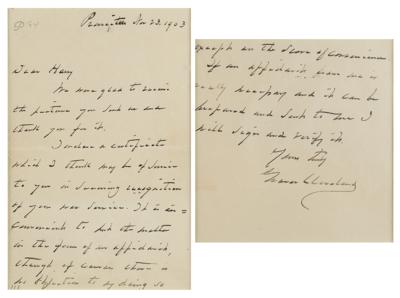 Princeton Nov 23. 1903
Dear Harry
We were glad to receive
the picture you sent us and
thank you for it.
I enclose a certificate
which I think may be of service
to you in securing recognition
of your war service. It is in=
convenient to put the matter
in the form of an affidavit,
though of course there is
no objection to my doing so
except on the score of convenience
If an affidavit from me is
really necessary and it can be
prepared and sent to me I
will sign and verify it.
Yours truly
Grover Cleveland